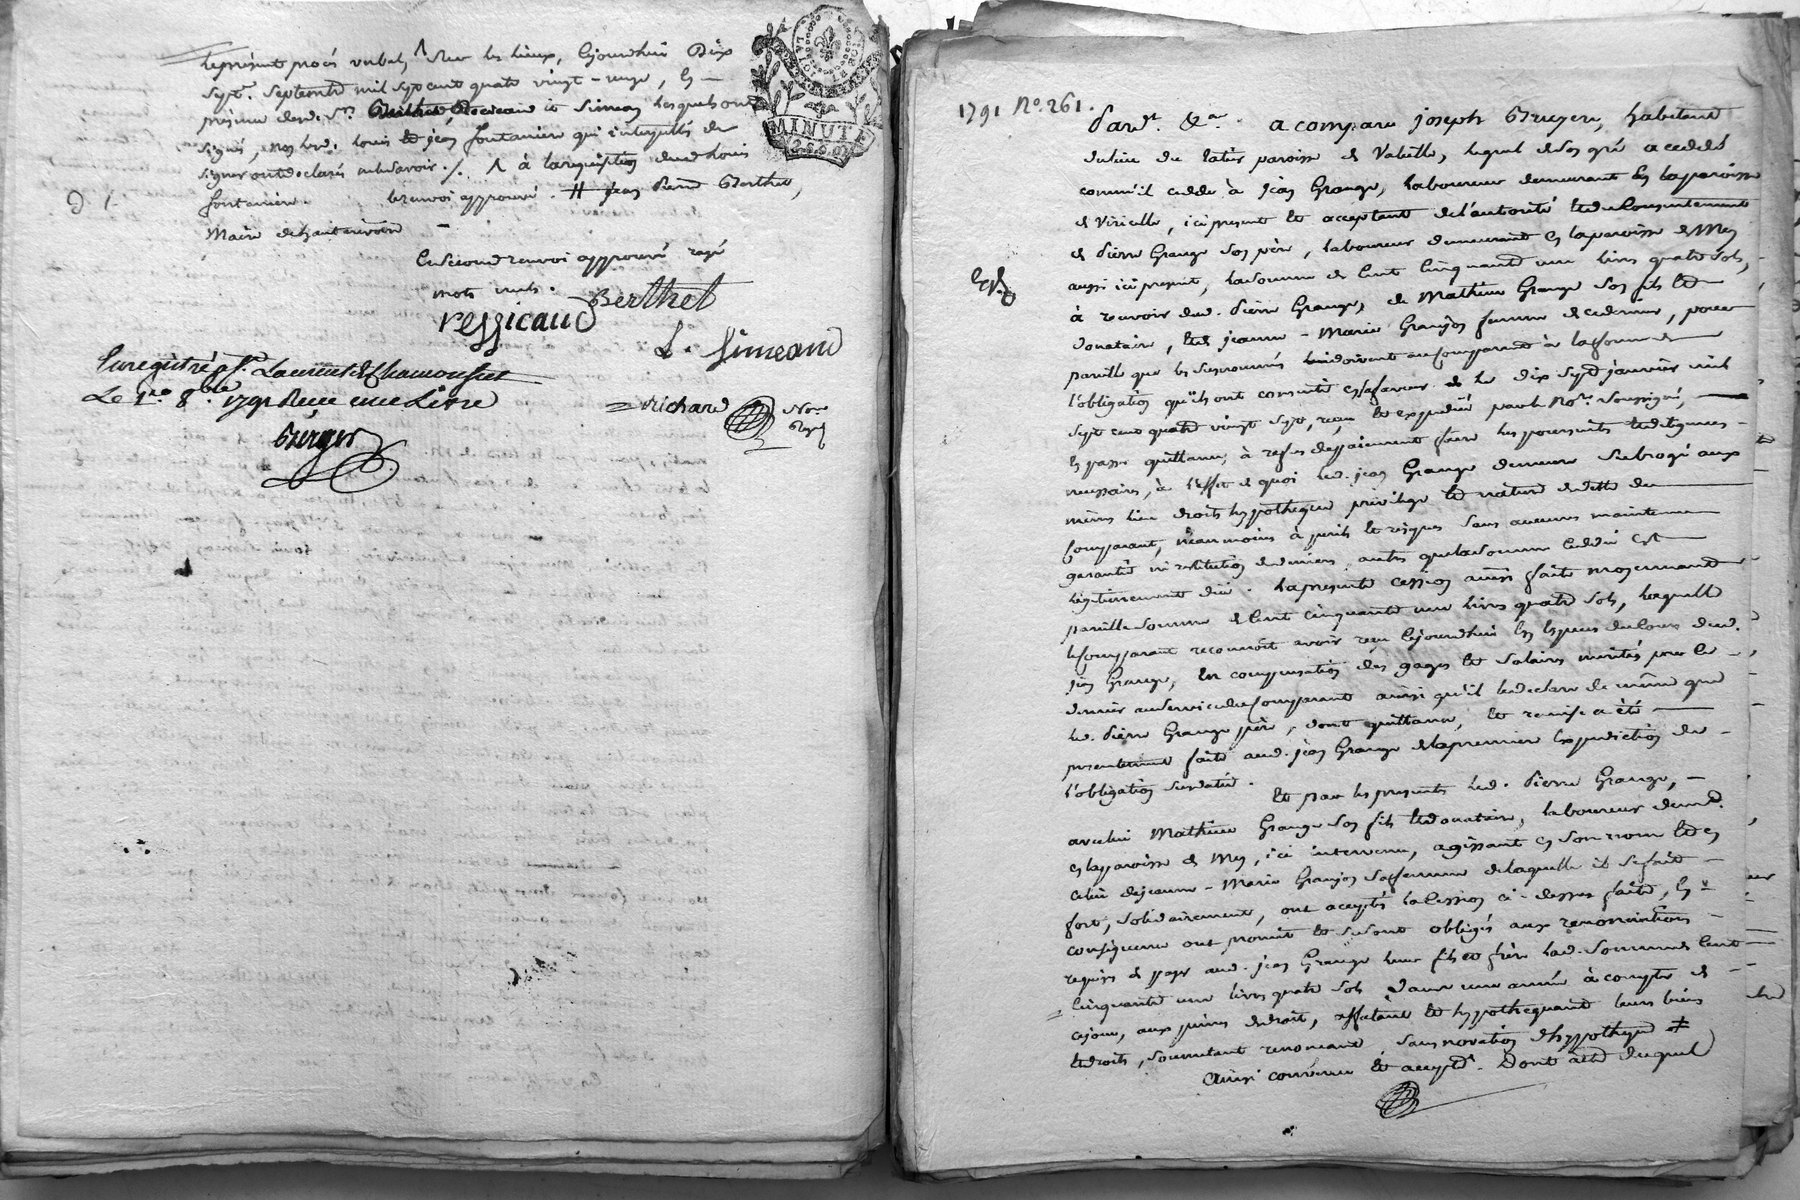 le présent procès verbal, sur les lieux, cejourdhui Dix
sept. septembre mil sept cent quatre vingt-onze, En
présence desd. srs. Berthet, et Simean lesquels ont
signés, non led. Louis et jean fontanier qui interpellés de
signer ont declarés ne le savoir ./. à la requisition dud. Louis
fontanier. le renvoi approuvé. # jean Pierre Berthet,
Maire de hauterivoire
Ce second renvoi approuvé rayé
mots nuls.
Berthet
ressicaud
L. Simeand
Enregistré à St. Laurent de Chamousset
Le 1er 8bre 1791 Reçu une Livre
Richard Nore
Royal
Berger
LA LOI LE ROI
MINUTE
1791 No. 261.
Pardt. &a. a comparu joseph Bruyere, habitant
du lieu de latis paroisse de Valeille, lequel de son gré a ceddé
comm'il cedde à jean Grange, laboureur demeurant En la paroisse
de Viricelle, ici present et acceptant de l'autorité et du Consentement
de Pierre Grange son père, laboureur demeurant en la paroisse de Meys
aussi ici present, la somme de Cent Cinquante une livres quatre sols,
à recevoir dud. Pierre Grange, de Mathieu Grange son fils et
donataire, et de jeanne-Marie Granjon femme de ce dernier, pour
pareille que les susnommés lui doivent au Comparant à la forme de
l'obligation qu'ils ont consentie en sa faveur le dix sept janvier mil
sept cent quatre vingt sept, reçu et expedié par le Nore. soussigné,
En passer quittance, à refus de payement faire les poursuites et diligences
necessaires, à l'effet de quoi led. jean Grange demeure subrogé aux
mêmes lieu droits hypotheque privilege et nature de dette du
Comparant, néanmoins à perils et risques sans aucunes maintenue
garantie ni restitution de deniers, autres que la somme Ceddée est
légitimement due. La presente cession ainsi faite moyennant
pareille somme de Cent cinquante une livres quatre sols, laquelle
le Comparant reconnoit avoir reçu Cejourdhui En Especes du Cours dud.
jean Grange, En compensation des gages et salaires mérités par ce
dernier au service du Comparant ainsi qu'il le declare de même que
led. Pierre Grange père, dont quittance, et remise a été
presentement faite aud. jean Grange de la premiere Expedition de
l'obligation susdatée. Et par les presentes led. Pierre Grange,
avec lui Mathieu Grange son fils et donataire, laboureur demt.
en la paroisse de Meys, ici intervenu, agissant en son nom et en
celui de jeanne-Marie Granjon sa femme de laquelle il se fait
fort, solidairement, ont accepté la Cession ci-dessus faite, En
consequence ont promit et se sont obligés aux renonciations
requises de payer aud. jean Grange leur fils et frère lad. somme de Cent
Cinquante une livres quatre sols dans une année à compter de
cejour, aux peines de droit, affectant et hypothequant leurs biens
et droits, soumettant renonçant sans novation d'hypotheque #
Ainsi convenu et accepté. Dont acte duquel